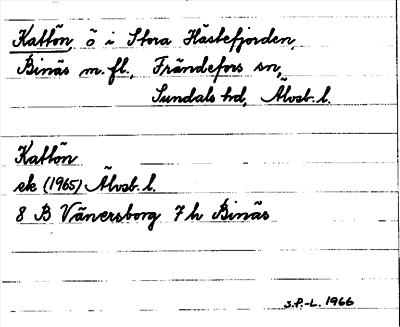 Kattön, ö i Stora Hästefjorden,
Binäs m.fl., Frändefors sn,
Sundals hd, Älvsb. l.
Kattön
ek (1965) Älvsb. l.
8 B Vänersborg 7 h Binäs
S.P.-L. 1966